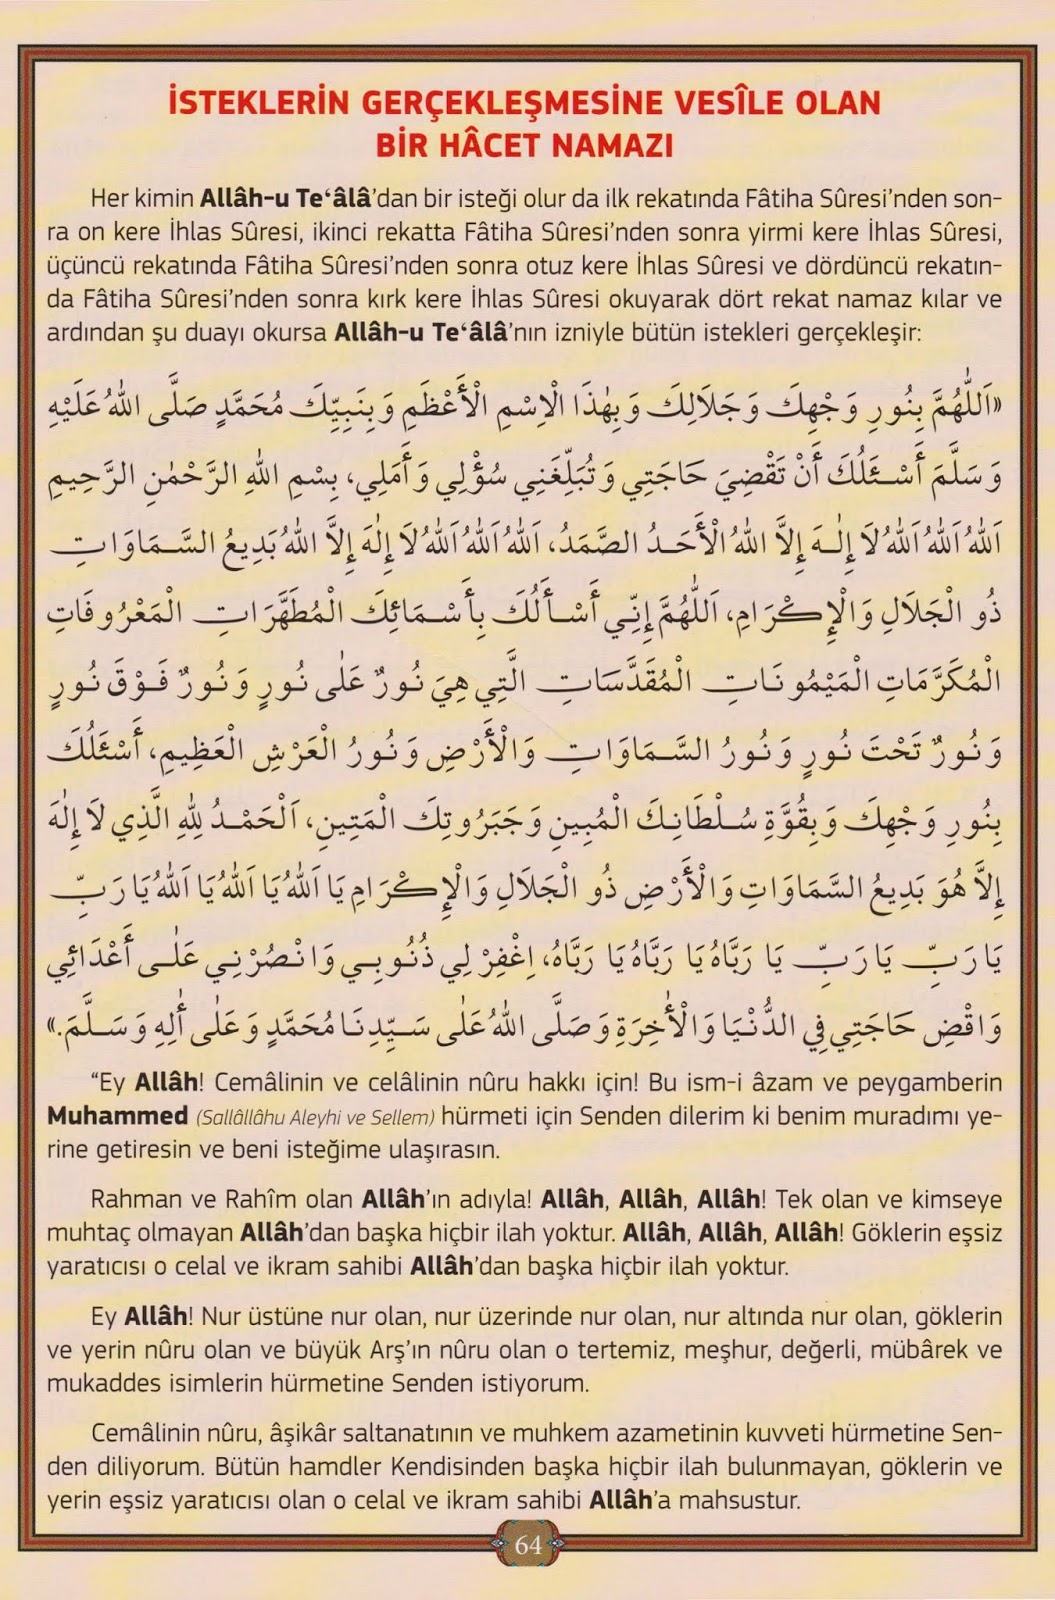 İSTEKLERİN GERÇEKLEŞMESİNE VESÎLE OLAN
BİR HÂCET NAMAZI
Her kimin Allâh-u Te‘âlâ’dan bir isteği olur da ilk rekatında Fâtiha Sûresi’nden son-
ra on kere İhlas Sûresi, ikinci rekatta Fâtiha Sûresi’nden sonra yirmi kere İhlas Sûresi,
üçüncü rekatında Fâtiha Sûresi’nden sonra otuz kere İhlas Sûresi ve dördüncü rekatın-
da Fâtiha Sûresi’nden sonra kırk kere İhlas Sûresi okuyarak dört rekat namaz kılar ve
ardından şu duayı okursa Allâh-u Te‘âlâ’nın izniyle bütün istekleri gerçekleşir:
«اَللّٰهُمَّ بِنُورِ وَجْهِكَ وَجَلَالِكَ وَبِهٰذَا الْاِسْمِ الْأَعْظَمِ وَبِنَبِيِّكَ مُحَمَّدٍ صَلَّى اللّٰهُ عَلَيْهِ
وَسَلَّمَ أَسْئَلُكَ أَنْ تَقْضِيَ حَاجَتِي وَتُبَلِّغَنِي سُؤْلِي وَأَمَلِي، بِسْمِ اللّٰهِ الرَّحْمٰنِ الرَّحِيمِ
اَللّٰهُ اَللّٰهُ اَللّٰهُ لَا إِلٰهَ إِلَّا اللّٰهُ الْأَحَدُ الصَّمَدُ، اَللّٰهُ اَللّٰهُ اَللّٰهُ لَا إِلٰهَ إِلَّا اللّٰهُ بَدِيعُ السَّمَاوَاتِ
ذُو الْجَلَالِ وَالْإِكْرَامِ، اَللّٰهُمَّ إِنِّي أَسْأَلُكَ بِأَسْمَائِكَ الْمُطَهَّرَاتِ الْمَعْرُوفَاتِ
الْمُكَرَّمَاتِ الْمَيْمُونَاتِ الْمُقَدَّسَاتِ الَّتِي هِيَ نُورٌ عَلٰى نُورٍ وَنُورٌ فَوْقَ نُورٍ
وَنُورٌ تَحْتَ نُورٍ وَنُورُ السَّمَاوَاتِ وَالْأَرْضِ وَنُورُ الْعَرْشِ الْعَظِيمِ، أَسْئَلُكَ
بِنُورِ وَجْهِكَ وَبِقُوَّةِ سُلْطَانِكَ الْمُبِينِ وَجَبَرُوتِكَ الْمَتِينِ، اَلْحَمْدُ لِلّٰهِ الَّذِي لَا إِلٰهَ
إِلَّا هُوَ بَدِيعُ السَّمَاوَاتِ وَالْأَرْضِ ذُو الْجَلَالِ وَالْإِكْرَامِ يَا اَللّٰهُ يَا اَللّٰهُ يَا اَللّٰهُ يَا رَبِّ
يَا رَبِّ يَا رَبِّ يَا رَبَّاهُ يَا رَبَّاهُ يَا رَبَّاهُ، اِغْفِرْ لِي ذُنُوبِي وَانْصُرْنِي عَلٰى أَعْدَائِي
وَاقْضِ حَاجَتِي فِي الدُّنْيَا وَالْأٰخِرَةِ وَصَلَّى اللّٰهُ عَلٰى سَيِّدِنَا مُحَمَّدٍ وَعَلٰى أٰلِهِ وَسَلَّمَ.»
“Ey Allâh! Cemâlinin ve celâlinin nûru hakkı için! Bu ism-i âzam ve peygamberin
Muhammed (Sallâllâhu Aleyhi ve Sellem) hürmeti için Senden dilerim ki benim muradımı ye-
rine getiresin ve beni isteğime ulaşırasın.
Rahman ve Rahîm olan Allâh’ın adıyla! Allâh, Allâh, Allâh! Tek olan ve kimseye
muhtaç olmayan Allâh’dan başka hiçbir ilah yoktur. Allâh, Allâh, Allâh! Göklerin eşsiz
yaratıcısı o celal ve ikram sahibi Allâh’dan başka hiçbir ilah yoktur.
Ey Allâh! Nur üstüne nur olan, nur üzerinde nur olan, nur altında nur olan, göklerin
ve yerin nûru olan ve büyük Arş’ın nûru olan o tertemiz, meşhur, değerli, mübârek ve
mukaddes isimlerin hürmetine Senden istiyorum.
Cemâlinin nûru, âşikâr saltanatının ve muhkem azametinin kuvveti hürmetine Sen-
den diliyorum. Bütün hamdler Kendisinden başka hiçbir ilah bulunmayan, göklerin ve
yerin eşsiz yaratıcısı olan o celal ve ikram sahibi Allâh’a mahsustur.
64